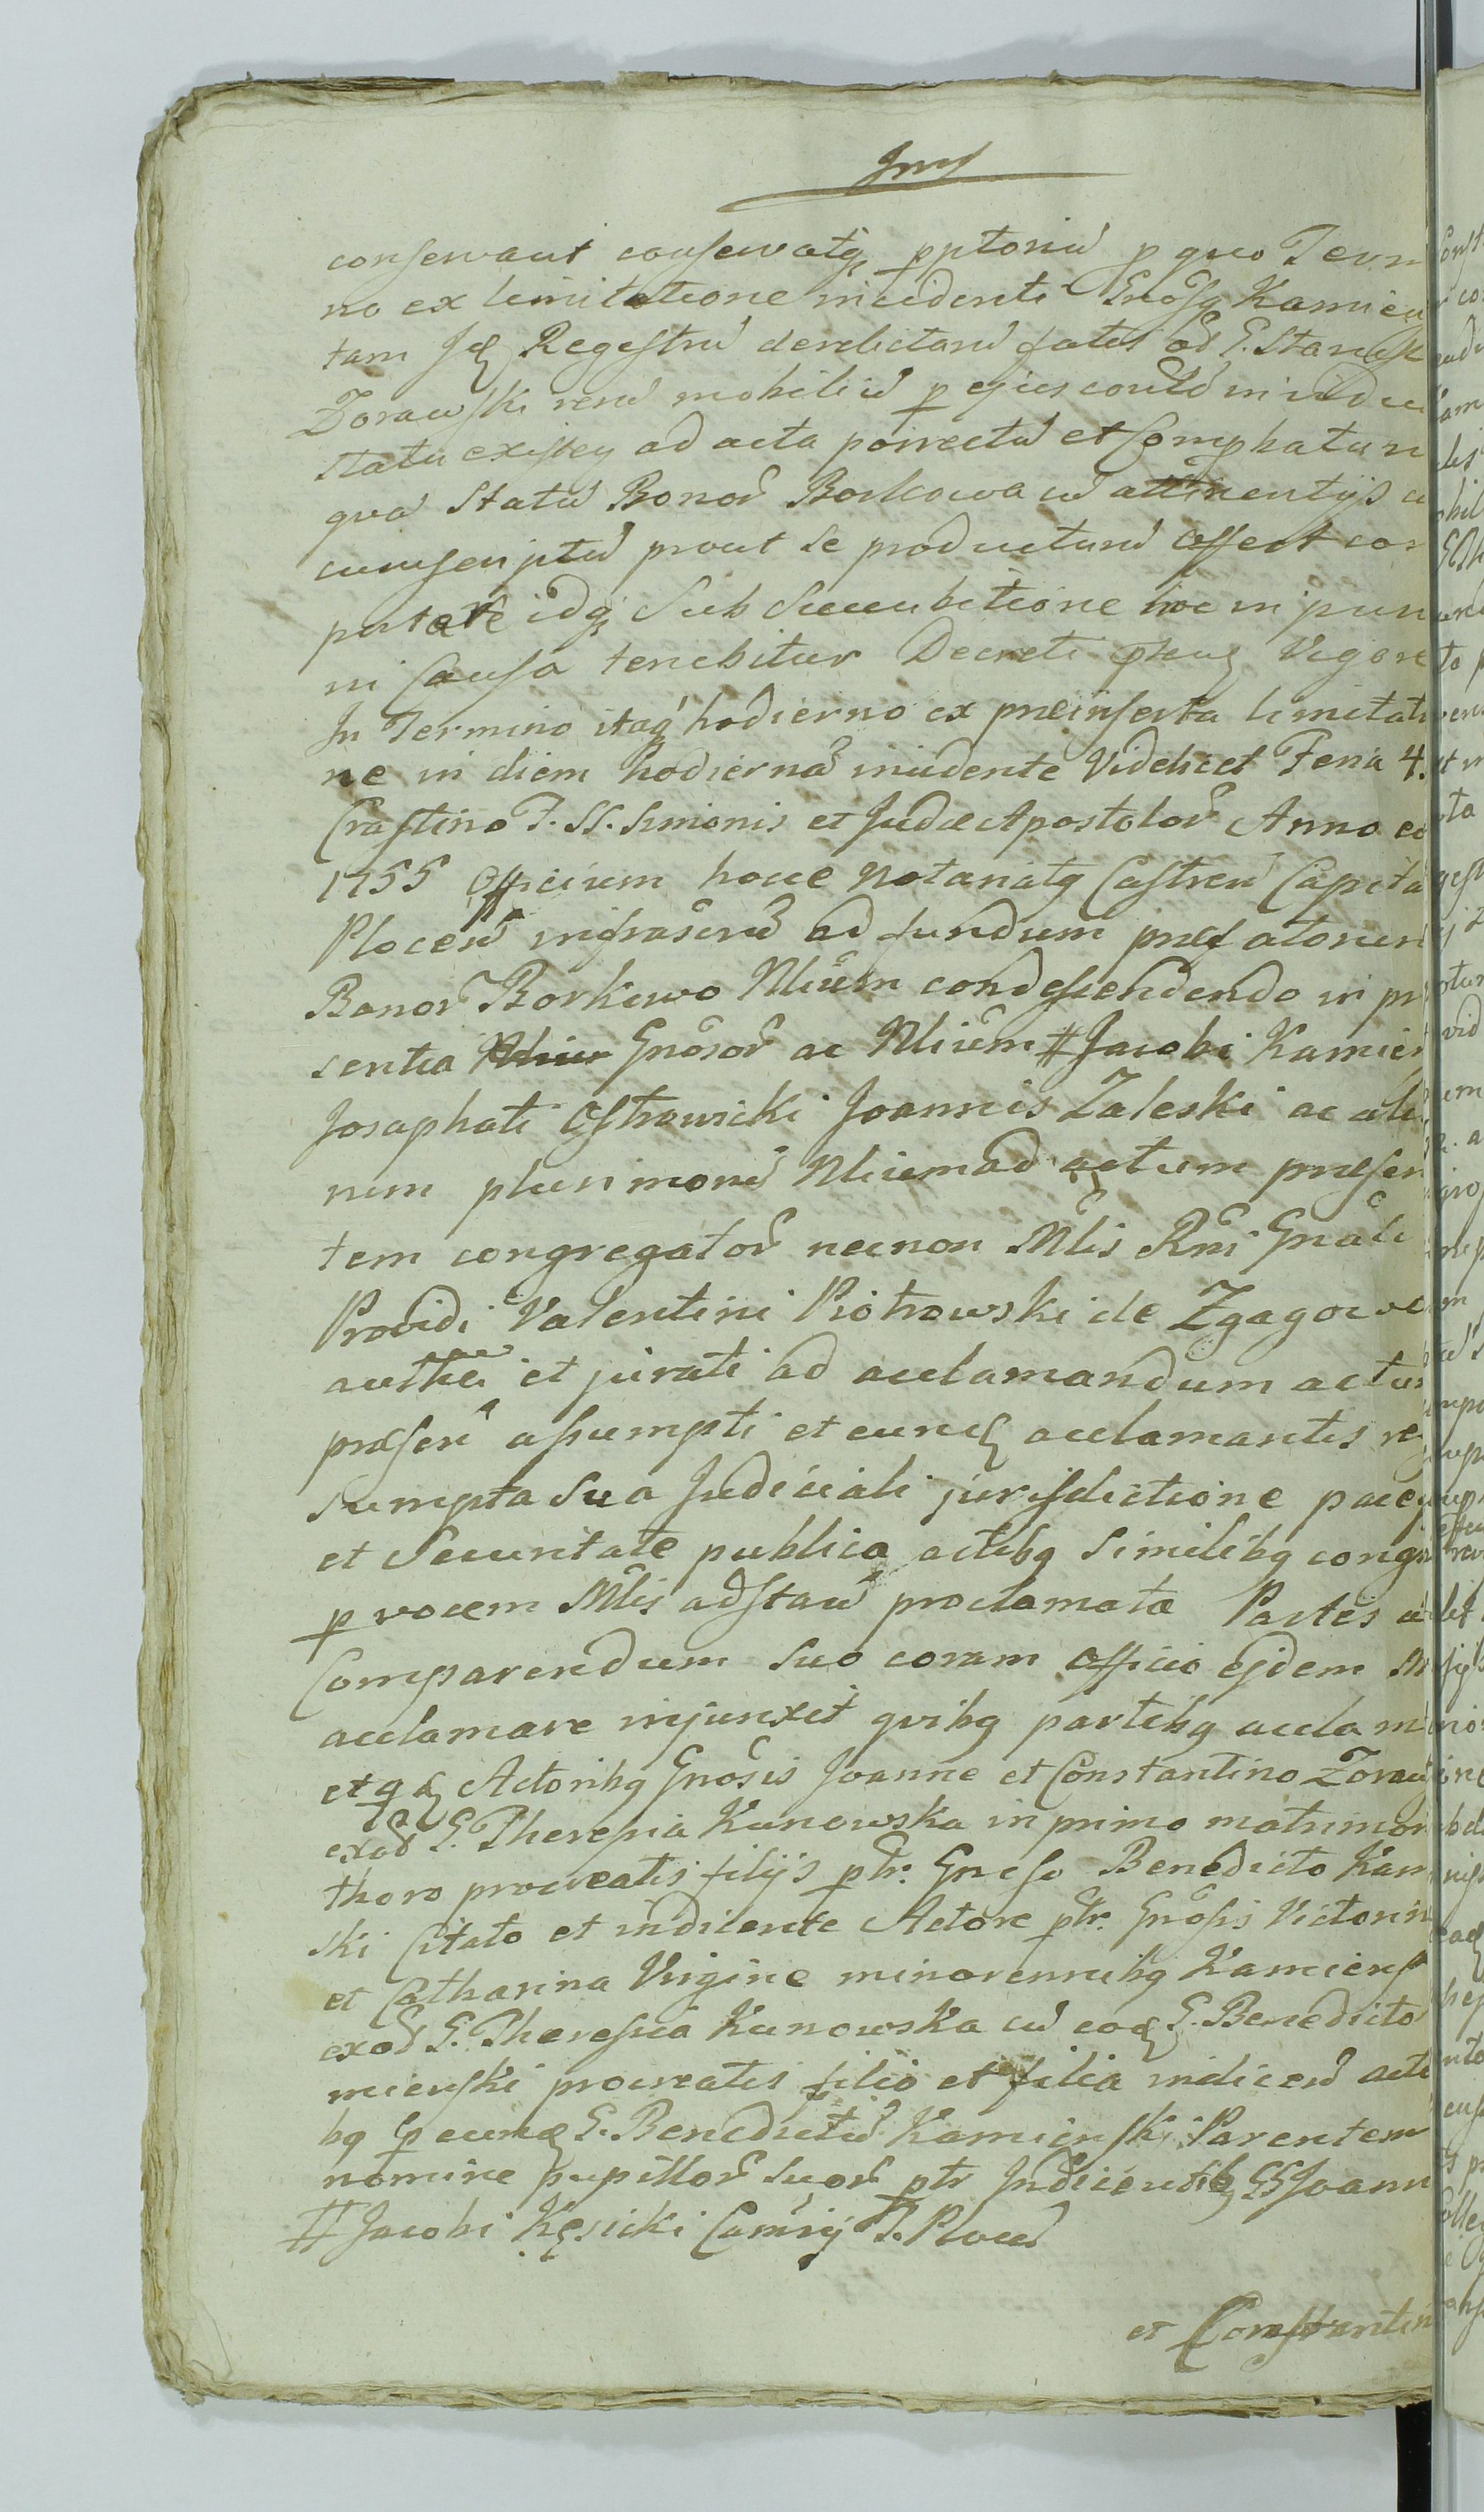 conservant conservatq pptoriu p quo Term
no ex limitatione incidenti Gnosq Kamien
tam Regestru derelictaru fatis od G. Stanisl
Zorawski reru mobiliu p ejus
statu existen ad acta porrectu et Comphatum
qva Statu Bonor Borkowa cu attinentijs
cumscriptu prout se producturu asseret com
putare idq Sub Succubitione hoc in pun
in Causa tenebitur Decreti pntis Vigore
In Termino itaq hodierno ex præinserta limitati
ne in diem hodierna incidente Videlicet Feria 4.
Crastino F. SS. Simonis et Judæ Apostolor Anno
1755 Officium hocce Notariatq Castren Capita
Plocen infrascru ad fundum præfatorum
Bonor Borkowo Nlium condescendendo in præ
sentia Gnosor ac Nlium # Jacobi Kamien
Josaphati Ostrowicki Joannis Zaleski ac alio
rum plurimoru Nlium ad actum præsen
tem congregator necnon Mlis Rni Gnali
Providi Valentini Piotrowski de Zgagowo
authci et jurati ad acclamandum actum
præsen assumpti et eund acclamantis re
sumpta sua Judiciali jurisdictione pace
et Securitate publica actibq similibq congr
p vocem Mlis adstan proclamata Partes
Comparendum suo coram officio ejdem M
acclamare injunxit qvibq partibq acclam
et qd Actoribq Gnosis Joanne et Constantino Zoraw
exod G. Theresia Kunowska in primo matrimon
thoro procreatis filijs ptr. Gneso Benedicto Kam
ski Citato et indicente Actore ptr. Gnosis Victorin
et Catharina Virgine minorennibq Kamiens
exod G. Theresia Kunowska cu eod G. Benedicto
mienski procreatis filio et filia indicen acto
bq p eund G. Benedictu Kamienski Parentem
nomine pupillor suor ptr Indicentib GG Joann
# Jacobi Kęsicki Camrij T. Plocen
et Constantin